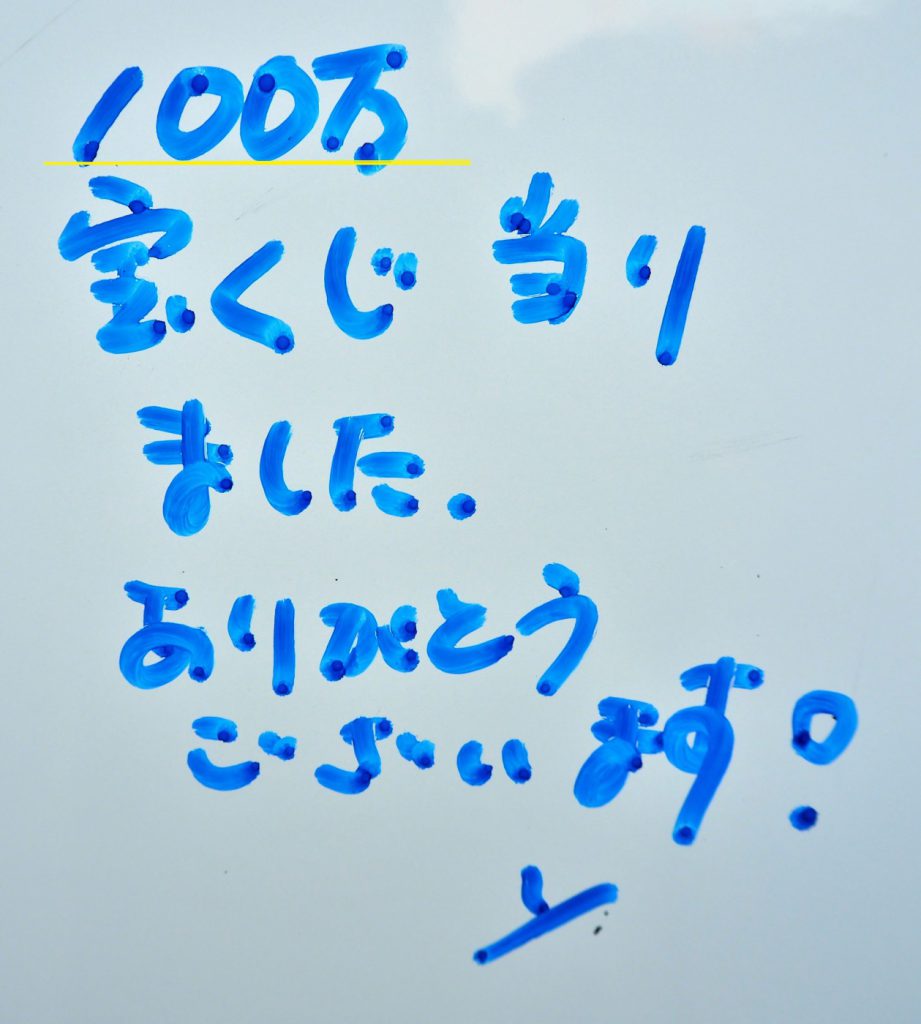 100万
宝くじ 当り
ました.
ありがとう
ございます!